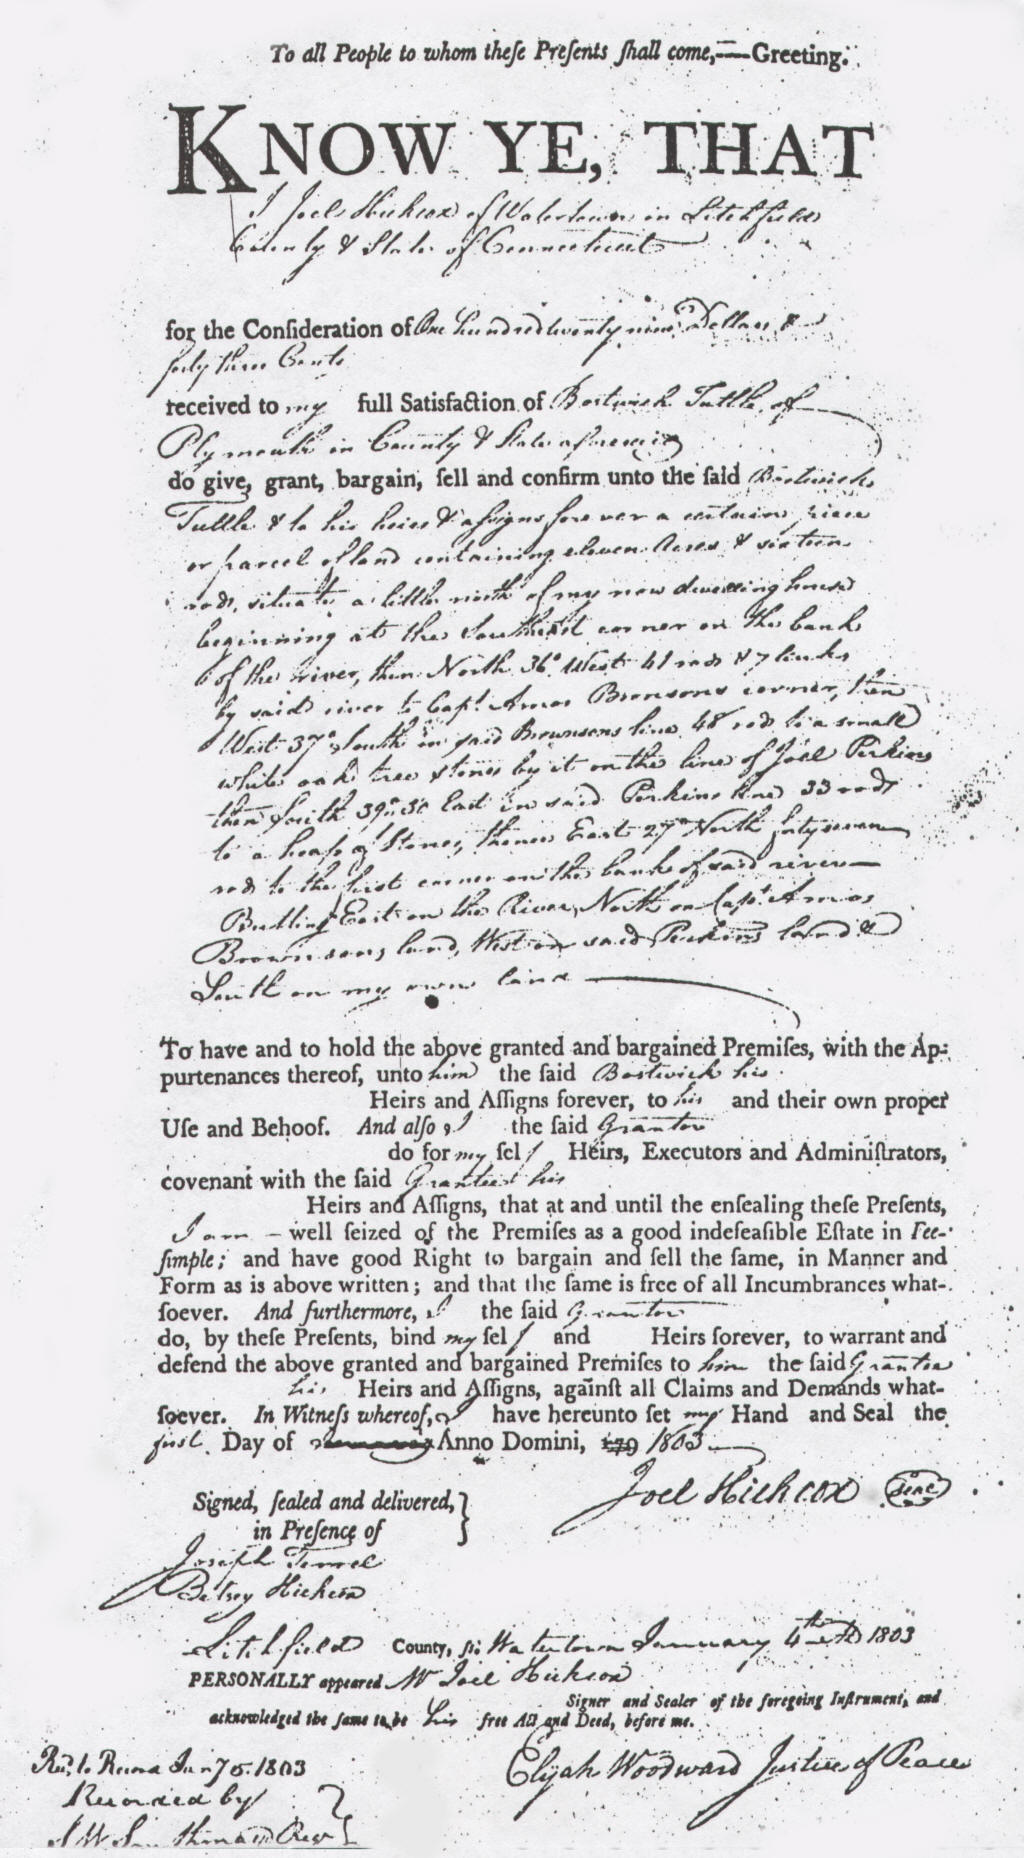 To all People to whom theſe Preſents ſhall come,—Greeting.
KNOW YE, THAT
I Joel Hickcox of Watertown in Litchfield
County & State of Connecticut
for the Conſideration of One hundred twenty nine Dollars &
forty three Cents
received to my full Satisfaction of Bostwick Tuttle of
Plymouth in County & State aforesaid
do give, grant, bargain, ſell and confirm unto the ſaid Bostwick
Tuttle & to his heirs & aſsigns forever a certain piece
or parcel of land containing eleven Acres & sixteen
rods, situate a little north of my now dwelling house
beginning at the Southeast corner on the bank
of the river, then North 36° West 41 rods & 7 links
by said river to Capt. Amos Bronsons corner, then
West 37° South in said Brownsons line 48 rods to a small
white oak tree & stones by it on the line of Joel Perkins
then South 39° 30' East in said Perkins line 33 rods
to a heap of Stones, thence East 27° North forty seven
rods to the first corner on the bank of said river
Butting East on the River, North on Capt. Amos
Brownsons land, West on said Perkins land &
South on my own land
To have and to hold the above granted and bargained Premiſes, with the Ap-
purtenances thereof, unto him the ſaid Bostwick his
Heirs and Aſſigns forever, to his and their own proper
Uſe and Behoof. And alſo I the ſaid Grantor
do for my ſelf Heirs, Executors and Adminiſtrators,
covenant with the ſaid Grantee his
Heirs and Aſſigns, that at and until the enſealing theſe Preſents,
I am well ſeized of the Premiſes as a good indefeaſible Eſtate in Fee-
ſimple; and have good Right to bargain and ſell the ſame, in Manner and
Form as is above written; and that the ſame is free of all Incumbrances what-
ſoever. And furthermore, I the ſaid Grantor
do, by theſe Preſents, bind my ſelf and Heirs forever, to warrant and
defend the above granted and bargained Premiſes to him the ſaid Grantee
his Heirs and Aſſigns, againſt all Claims and Demands what-
ſoever. In Witneſs whereof, I have hereunto ſet my Hand and Seal the
first Day of Anno Domini, 179 1803
Joel Hickcox Seal
Signed, ſealed and delivered,
in Preſence of
Joseph Terrel
Betsey Hickcox
Litchfield County, ſſ. Watertown January 4th 1803
PERSONALLY appeared Mr Joel Hickcox
Signer and Sealer of the foregoing Inſtrument, and
acknowledged the ſame to be his free Act and Deed, before me.
Elijah Woodward Juſtice of Peace
Recd. to Record Jany 5. 1803
Recorded by